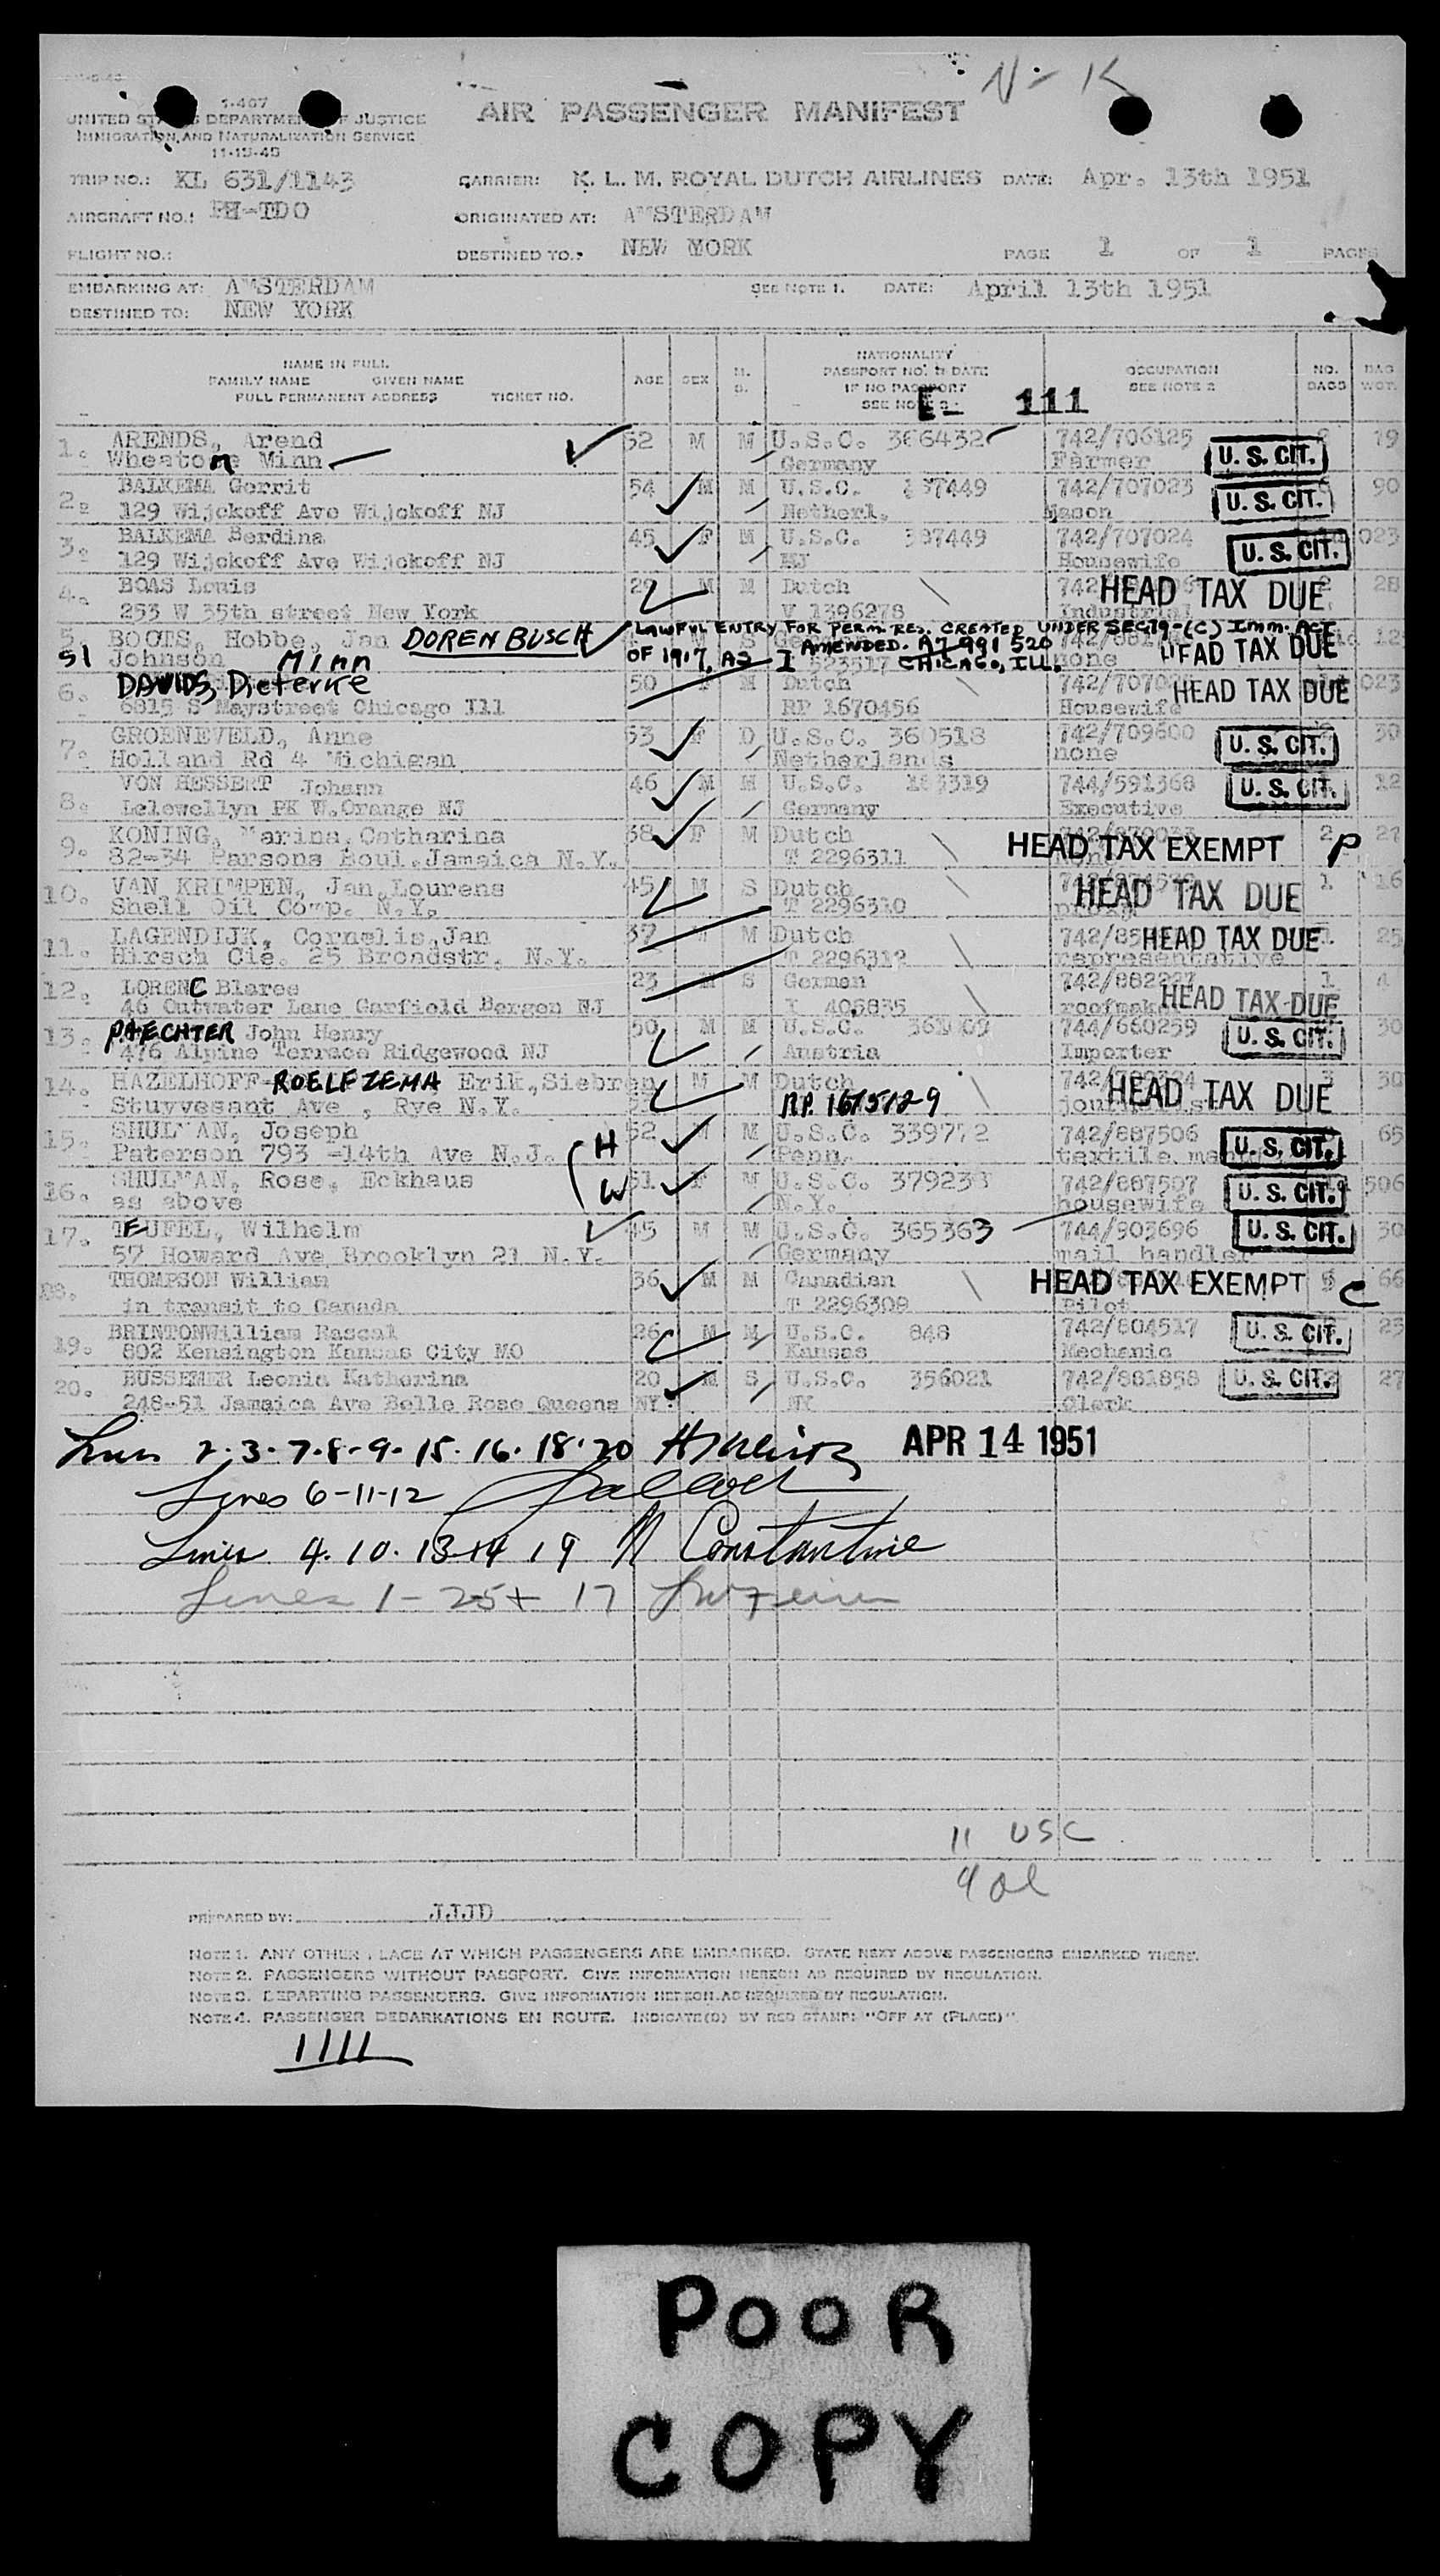 N - K
I-407
UNITED STATES DEPARTMENT OF JUSTICE
IMMIGRATION AND NATURALIZATION SERVICE
11-15-45
AIR PASSENGER MANIFEST
TRIP NO.: KL 631/1143 CARRIER: K. L. M. ROYAL DUTCH AIRLINES DATE: Apr. 13th 1951
AIRCRAFT NO.: PH-TDO ORIGINATED AT: AMSTERDAM
FLIGHT NO.: DESTINED TO: NEW YORK PAGE 1 OF 1 PAGES
EMBARKING AT: AMSTERDAM SEE NOTE 1. DATE: April 13th 1951
DESTINED TO: NEW YORK
NAME IN FULL
FAMILY NAME GIVEN NAME
FULL PERMANENT ADDRESS TICKET NO.
AGE SEX M. S.
NATIONALITY
PASSPORT NO. & DATE
IF NO PASSPORT
SEE NOTE 2
OCCUPATION
SEE NOTE 2
NO. BAGS BAG WGT.
E- 111
1. ARENDS, Arend 52 M M U.S.C. 366432 742/706125 19
Wheaton Minn Germany Farmer U. S. CIT.
2. BALKEMA Gerrit 54 M M U.S.C. 742/707023 90
129 Wijckoff Ave Wijckoff NJ Netherl. Mason U. S. CIT.
3. BALKEMA Berdina 45 F M U.S.C. 742/707024 023
129 Wijckoff Ave Wijckoff NJ NJ Housewife U. S. CIT.
4. BOAS Louis 29 M M Dutch HEAD TAX DUE 28
253 W 35th street New York V 1396278 Industrial
5. BOOTS, Hobbe, Jan DOREN BUSCH LAWFUL ENTRY FOR PERM. RES. CREATED UNDER SEC. 19-(C) IMM. ACT
51 Johnson Minn OF 1917, AS AMENDED. A7 991 520 CHICAGO, ILL. none HEAD TAX DUE
6. DAVIDS, Dieterke 50 F M Dutch HEAD TAX DUE 023
6815 S Maystreet Chicago Ill RP 1670456 Housewife
7. GROENEVELD, Anne 53 F D U.S.C. 360518 742/709600 30
Holland Rd 4 Michigan Netherlands none U. S. CIT.
8. VON HESSERT Johann 46 M M U.S.C. 744/591368 12
Lelewellyn PK W.Orange NJ Germany Executive U. S. CIT.
9. KONING, Marina, Catharina 38 F M Dutch HEAD TAX EXEMPT 2 P 27
82-34 Parsons Boul. Jamaica N.Y. T 2296311
10. VAN KRIMPEN, Jan, Lourens 45 M S Dutch HEAD TAX DUE 1 16
Shell Oil Comp. N.Y. T 2296310
11. LAGENDIJK, Cornelis, Jan 37 M M Dutch HEAD TAX DUE 25
Hirsch Cie. 25 Broadstr. N.Y. T 2296312 representative
12. LORENC Blaree 23 M S German HEAD TAX DUE 1 4
46 Outwater Lane Garfield Bergen NJ I 406835
13. PAECHTER John Henry 50 M M U.S.C. 744/660259 30
476 Alpine Terrace Ridgewood NJ Austria Importer U. S. CIT.
14. HAZELHOFF ROELFZEMA Erik, Siebren M M Dutch HEAD TAX DUE 30
Stuyvesant Ave , Rye N.Y. RP. 1675129
15. SHULMAN, Joseph H 52 M M U.S.C. 339772 742/887506 65
Paterson 793 -14th Ave N.J. Penn. U. S. CIT.
16. SHULMAN, Rose, Eckhaus W 51 F M U.S.C. 742/887507 506
as above N.Y. housewife U. S. CIT.
17. TEUFEL, Wilhelm 45 M M U.S.C. 365363 744/903696 30
57 Howard Ave Brooklyn 21 N.Y. Germany mail handler U. S. CIT.
18. THOMPSON William 36 M M Canadian HEAD TAX EXEMPT C 66
in transit to Canada T 2296309 Pilot
19. BRINTON William Rascal 26 M M U.S.C. 848 742/804517 23
802 Kensington Kansas City MO Kansas Mechanic U. S. CIT.
20. BUSSEMER Leonia Katherina 20 M S U.S.C. 356021 742/881858 27
248-51 Jamaica Ave Belle Rose Queens NY. NY Clerk U. S. CIT.
Lines 2.3.7.8.9.15.16.18.20 APR 14 1951
Lines 6-11-12
Lines 4.10.13.14 19 M Constantine
Lines 1-25+ 17
11 USC
9 al
PREPARED BY: JJJD
NOTE 1. ANY OTHER PLACE AT WHICH PASSENGERS ARE EMBARKED. STATE NEXT ABOVE PASSENGERS EMBARKED THERE.
NOTE 2. PASSENGERS WITHOUT PASSPORT. GIVE INFORMATION HEREON AS REQUIRED BY REGULATION.
NOTE 3. DEPARTING PASSENGERS. GIVE INFORMATION HEREON AS REQUIRED BY REGULATION.
NOTE 4. PASSENGER DEBARKATIONS EN ROUTE. INDICATE(D) BY RED STAMP: "OFF AT (PLACE)"
1111
POOR
COPY